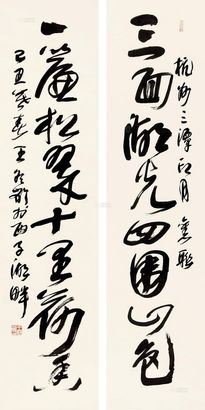 杭州三潭印月旧联
三面湖光四围山色
一帘松翠十里荷香
己丑年春王冬龄西子湖畔